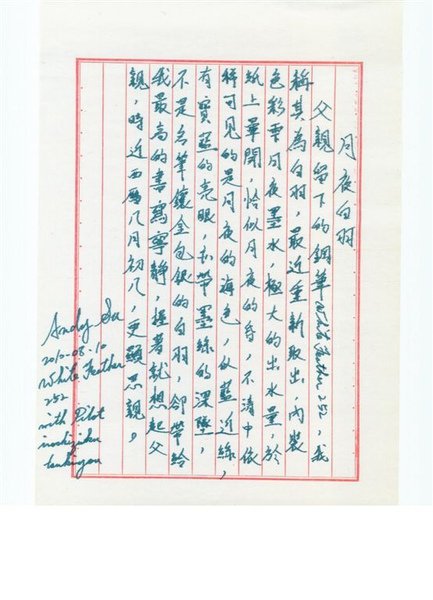 月夜白羽
父親留下的鋼筆White Feather 252，我
稱其為白羽，最近重新取出，內裝
色彩雫月夜墨水，極大的出水量，於
紙上暈開，恰似月夜的昏，不清中依
稀可見的是月夜的海色，似藍近綠，
有寶藍的亮眼，亦帶墨綠的深墜，
不是名筆鑲金包銀的白羽，卻帶給
我最高的書寫寧靜，握著就想起父
親，時近西曆八月初八，更顯思親。
Andy Su
2010-08-10
White Feather
252
with Pilot
iroshizuku
tsukiyo